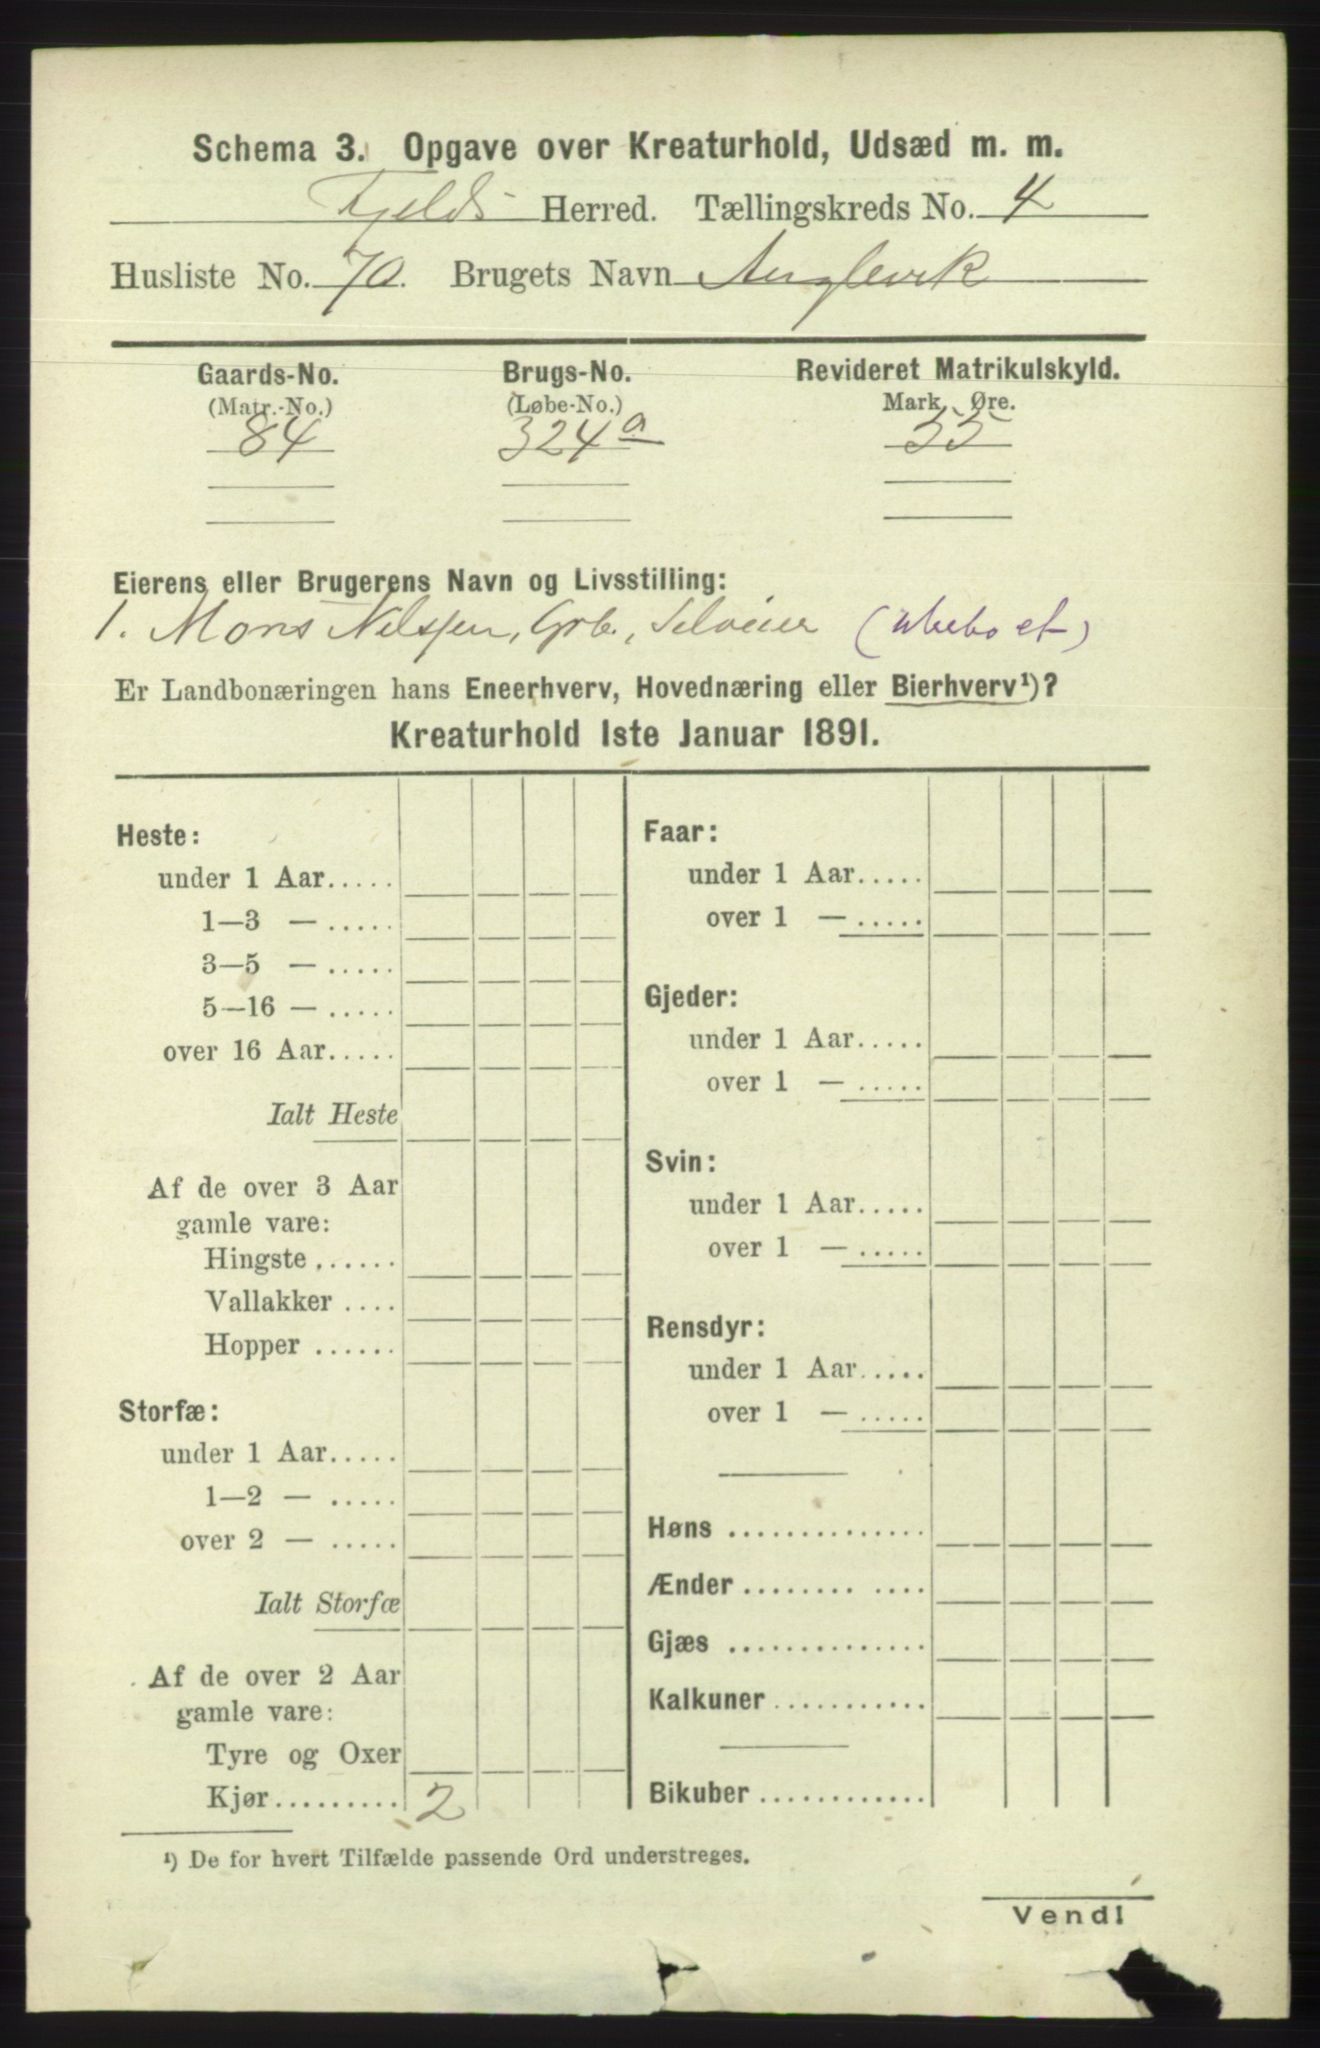 Schema 3. Opgave over Kreaturhold, Udsæd m. m.
Fjelds Herred. Tællingskreds No. 4
Husliste No. 70. Brugets Navn Anglevik
Gaards-No. Brugs-No. Revideret Matrikulskyld.
(Matr.-No.) (Løbe-No.) Mark Øre.
84 324a 55
Eierens eller Brugerens Navn og Livsstilling:
1. Mons Nilsen, Grb., Selveier (ubeboet)
Er Landbonæringen hans Eneerhverv, Hovednæring eller Bierhverv¹)?
Kreaturhold 1ste Januar 1891.
Heste:
under 1 Aar.....
1—3 — .....
3—5 — .....
5—16 — .....
over 16 Aar.....
Ialt Heste
Af de over 3 Aar
gamle vare:
Hingste ......
Vallakker ....
Hopper ......
Storfæ:
under 1 Aar.....
1—2 — .....
over 2 — .....
Ialt Storfæ
Af de over 2 Aar
gamle vare:
Tyre og Oxer
Kjør......... 2
Faar:
under 1 Aar.....
over 1 — .....
Gjeder:
under 1 Aar.....
over 1 — .....
Svin:
under 1 Aar.....
over 1 — .....
Rensdyr:
under 1 Aar.....
over 1 — .....
Høns ..............
Ænder ........ ....
Gjæs ..............
Kalkuner ...........
Bikuber ............
¹) De for hvert Tilfælde passende Ord understreges.
Vend!